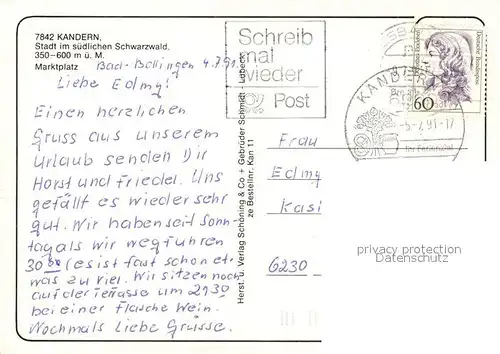 7842 KANDERN,
Stadt im südlichen Schwarzwald,
350–600 m ü. M.
Marktplatz
Bad-Bellingen 4.7.91.
Liebe Edmy!
Einen herzlichen
Gruss aus unserem
Urlaub senden Dir
Horst und Friedel. Uns
gefällt es wieder sehr
gut. Wir haben seit Sonn-
tag als wir wegfuhren
30 (es ist fast schon et-
was zu viel. Wir sitzen noch
auf der Terrasse um 21 30
bei einer Flasche Wein.
Nochmals Liebe Grüsse.
Herst. u. Verlag Schöning & Co + Gebrüder Schmidt - Lübeck
ze Bestellnr. Kan 11
Schreib
mal
wieder
Post
Deutsche Bundespost
60
KANDERN
-5-7.91-17
Frau
Edmy
Kasi
6230
privacy protection
Datenschutz